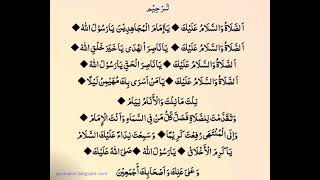 تَرْحِيْم
اَلصَّلَاةُ وَالسَّلَامُ عَلَيْكَ ◆ يَاإِمَامَ الْمُجَاهِدِيْنَ يَارَسُوْلَ اللهْ ◆
اَلصَّلَاةُ وَالسَّلَامُ عَلَيْكَ ◆ يَانَاصِرَ الْهُدَى يَا خَيْرَ خَلْقِ اللهْ ◆
اَلصَّلَاةُ وَالسَّلَامُ عَلَيْكَ ◆ يَانَاصِرَ الْحَقِّ يَارَسُوْلَ اللهْ ◆
اَلصَّلَاةُ وَالسَّلَامُ عَلَيْكَ ◆ يَامَنْ اَسْرَى بِكَ مُهَيْمِنُ لَيْلًا ◆
نِلْتَ مَا نِلْتَ وَالْأَنَامُ نِيَامْ ◆
وَتَقَدَّمْتَ لِلصَّلَاةِ فَصَلَّ كُلُّ مَنْ فِي السَّمَاءِ وَأَنْتَ الْإِمَامْ ◆
وَإِلَى الْمُنْتَهَى رُفِعْتَ كَرِيْمًا ◆ وَسَمِعْتَ نِدَاءً عَلَيْكَ السَّلَامْ
يَا كَرِيْمَ الْأَخْلَاقْ ◆ يَارَسُوْلَ اللهْ ◆ صَلَّى اللهُ عَلَيْكَ ◆
وَعَلَى آلِكَ وَ أَصْحَابِكَ أَجْمَعِيْنَ